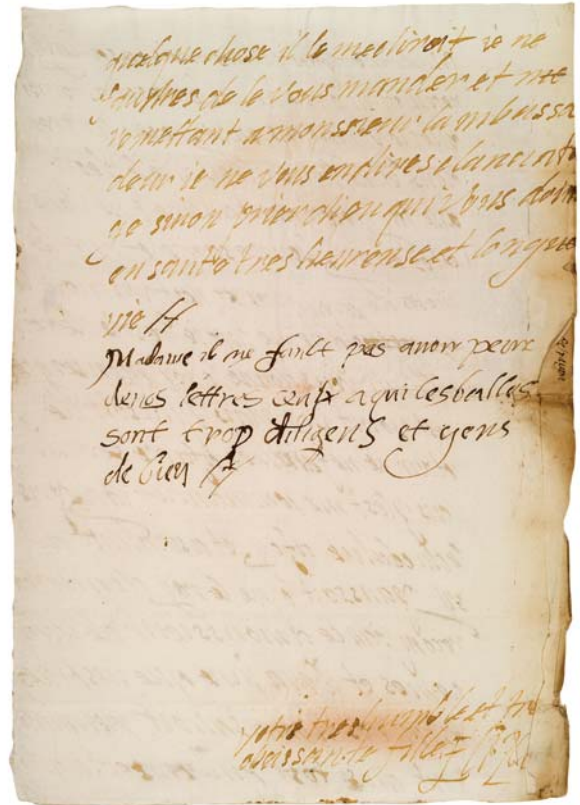 quelque chose il le me diroit ie ne
de le vous mander et me
remettant a monssieur lambassa
deur ie ne vous en dires
ge sinon prier dieu qui vous doint
en santo tres heureuse et longue
vie
Madame il ne fault pas avoir peur
de nos lettres ceulx a qui les bailles
sont trop diligens et gens
de bien
votre tres humble et tre
obaissante fille